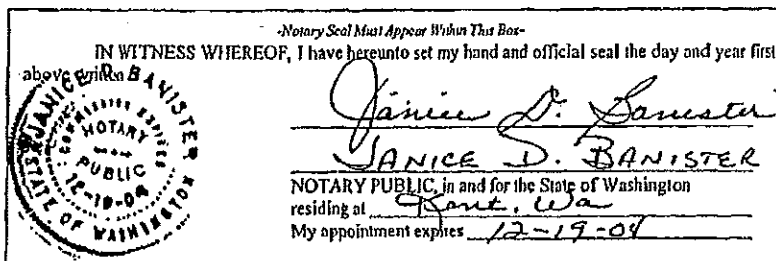 -Notary Seal Must Appear Within This Box-
IN WITNESS WHEREOF, I have hereunto set my hand and official seal the day and year first
above written
JANICE D. BANISTER
COMMISSION EXPIRES
NOTARY
PUBLIC
12-19-04
STATE OF WASHINGTON
Janice D. Banister
JANICE D. BANISTER
NOTARY PUBLIC, in and for the State of Washington
residing at Kent, Wa
My appointment expires 12-19-04